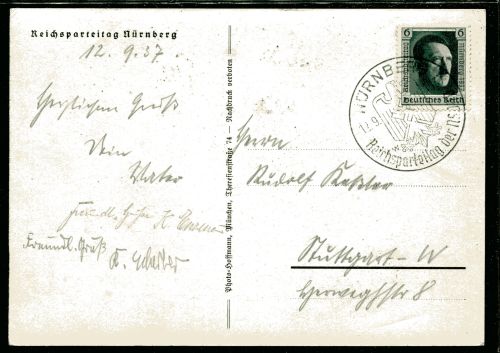 Reichsparteitag Nürnberg
12. 9. 37.
Herzlichen Gruß
Dein
Vater
Freundl. Gruß
Photo-Hoffmann, München, Theresienstraße 74 — Nachdruck verboten
6 6
Deutsches Reich
NÜRNBERG
Reichsparteitag der NSDAP
Herrn
Rudolf
Stuttgart-W
Herweghstr 8